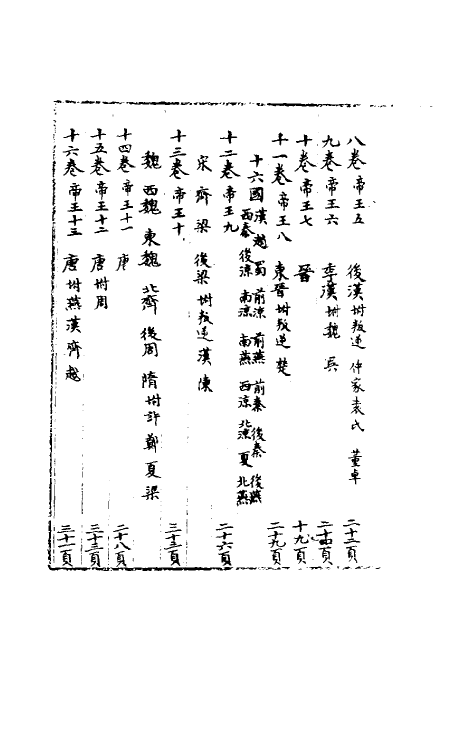 八卷帝王五 後漢坿叛逆 仲家袁氏 董卓 二十二頁
九卷帝王六 季漢坿魏 吳 二十四頁
十卷帝王七 晉 十九頁
十一卷帝王八 東晉坿叛逆楚 二十九頁
十六國漢 趙 蜀 前涼 前燕 前秦 後秦 後燕
西秦 後涼 南涼 南燕 西涼 北涼 夏 北燕
十二卷帝王九 二十六頁
宋 齊 梁 後梁坿叛逆漢 陳
十三卷帝王十 三十三頁
魏 西魏 東魏 北齊 後周 隋坿許 鄭 夏 梁
十四卷帝王十一 唐 二十八頁
十五卷帝王十二 唐坿周 三十三頁
十六卷帝王十三 唐坿燕 漢 齊 越 三十一頁